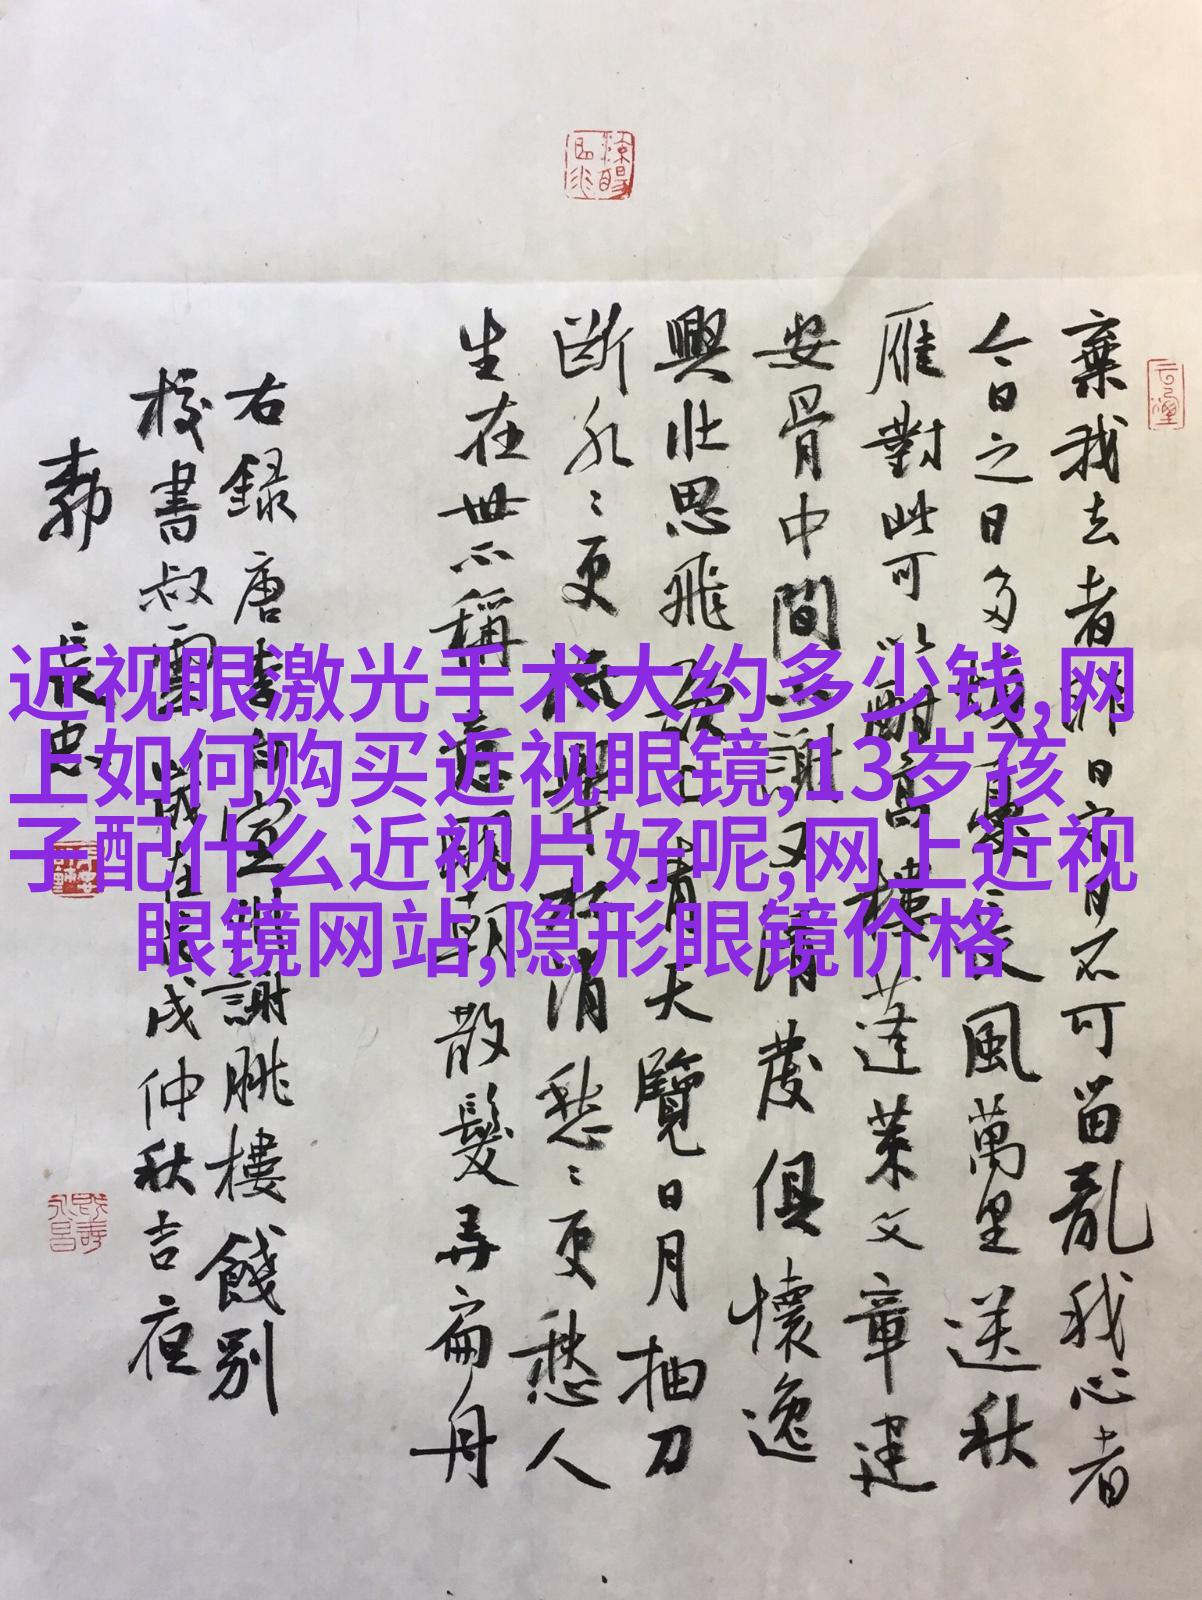 棄我去者昨日之日不可留亂我心者
今日之日多煩憂長風萬里送秋
雁對此可以酣高樓蓬萊文章建
安骨中間小謝又清發俱懷逸
興壯思飛欲上青天覽日月抽刀
斷水〻更流舉杯消愁〻更愁人
生在世不稱意明朝散髮弄扁舟
右錄唐李白宣州謝朓樓餞別
校書叔雲歲在戊戌仲秋吉夜
近视眼激光手术大约多少钱,网
上如何购买近视眼镜,13岁孩
子配什么近视片好呢,网上近视
眼镜网站,隐形眼镜价格